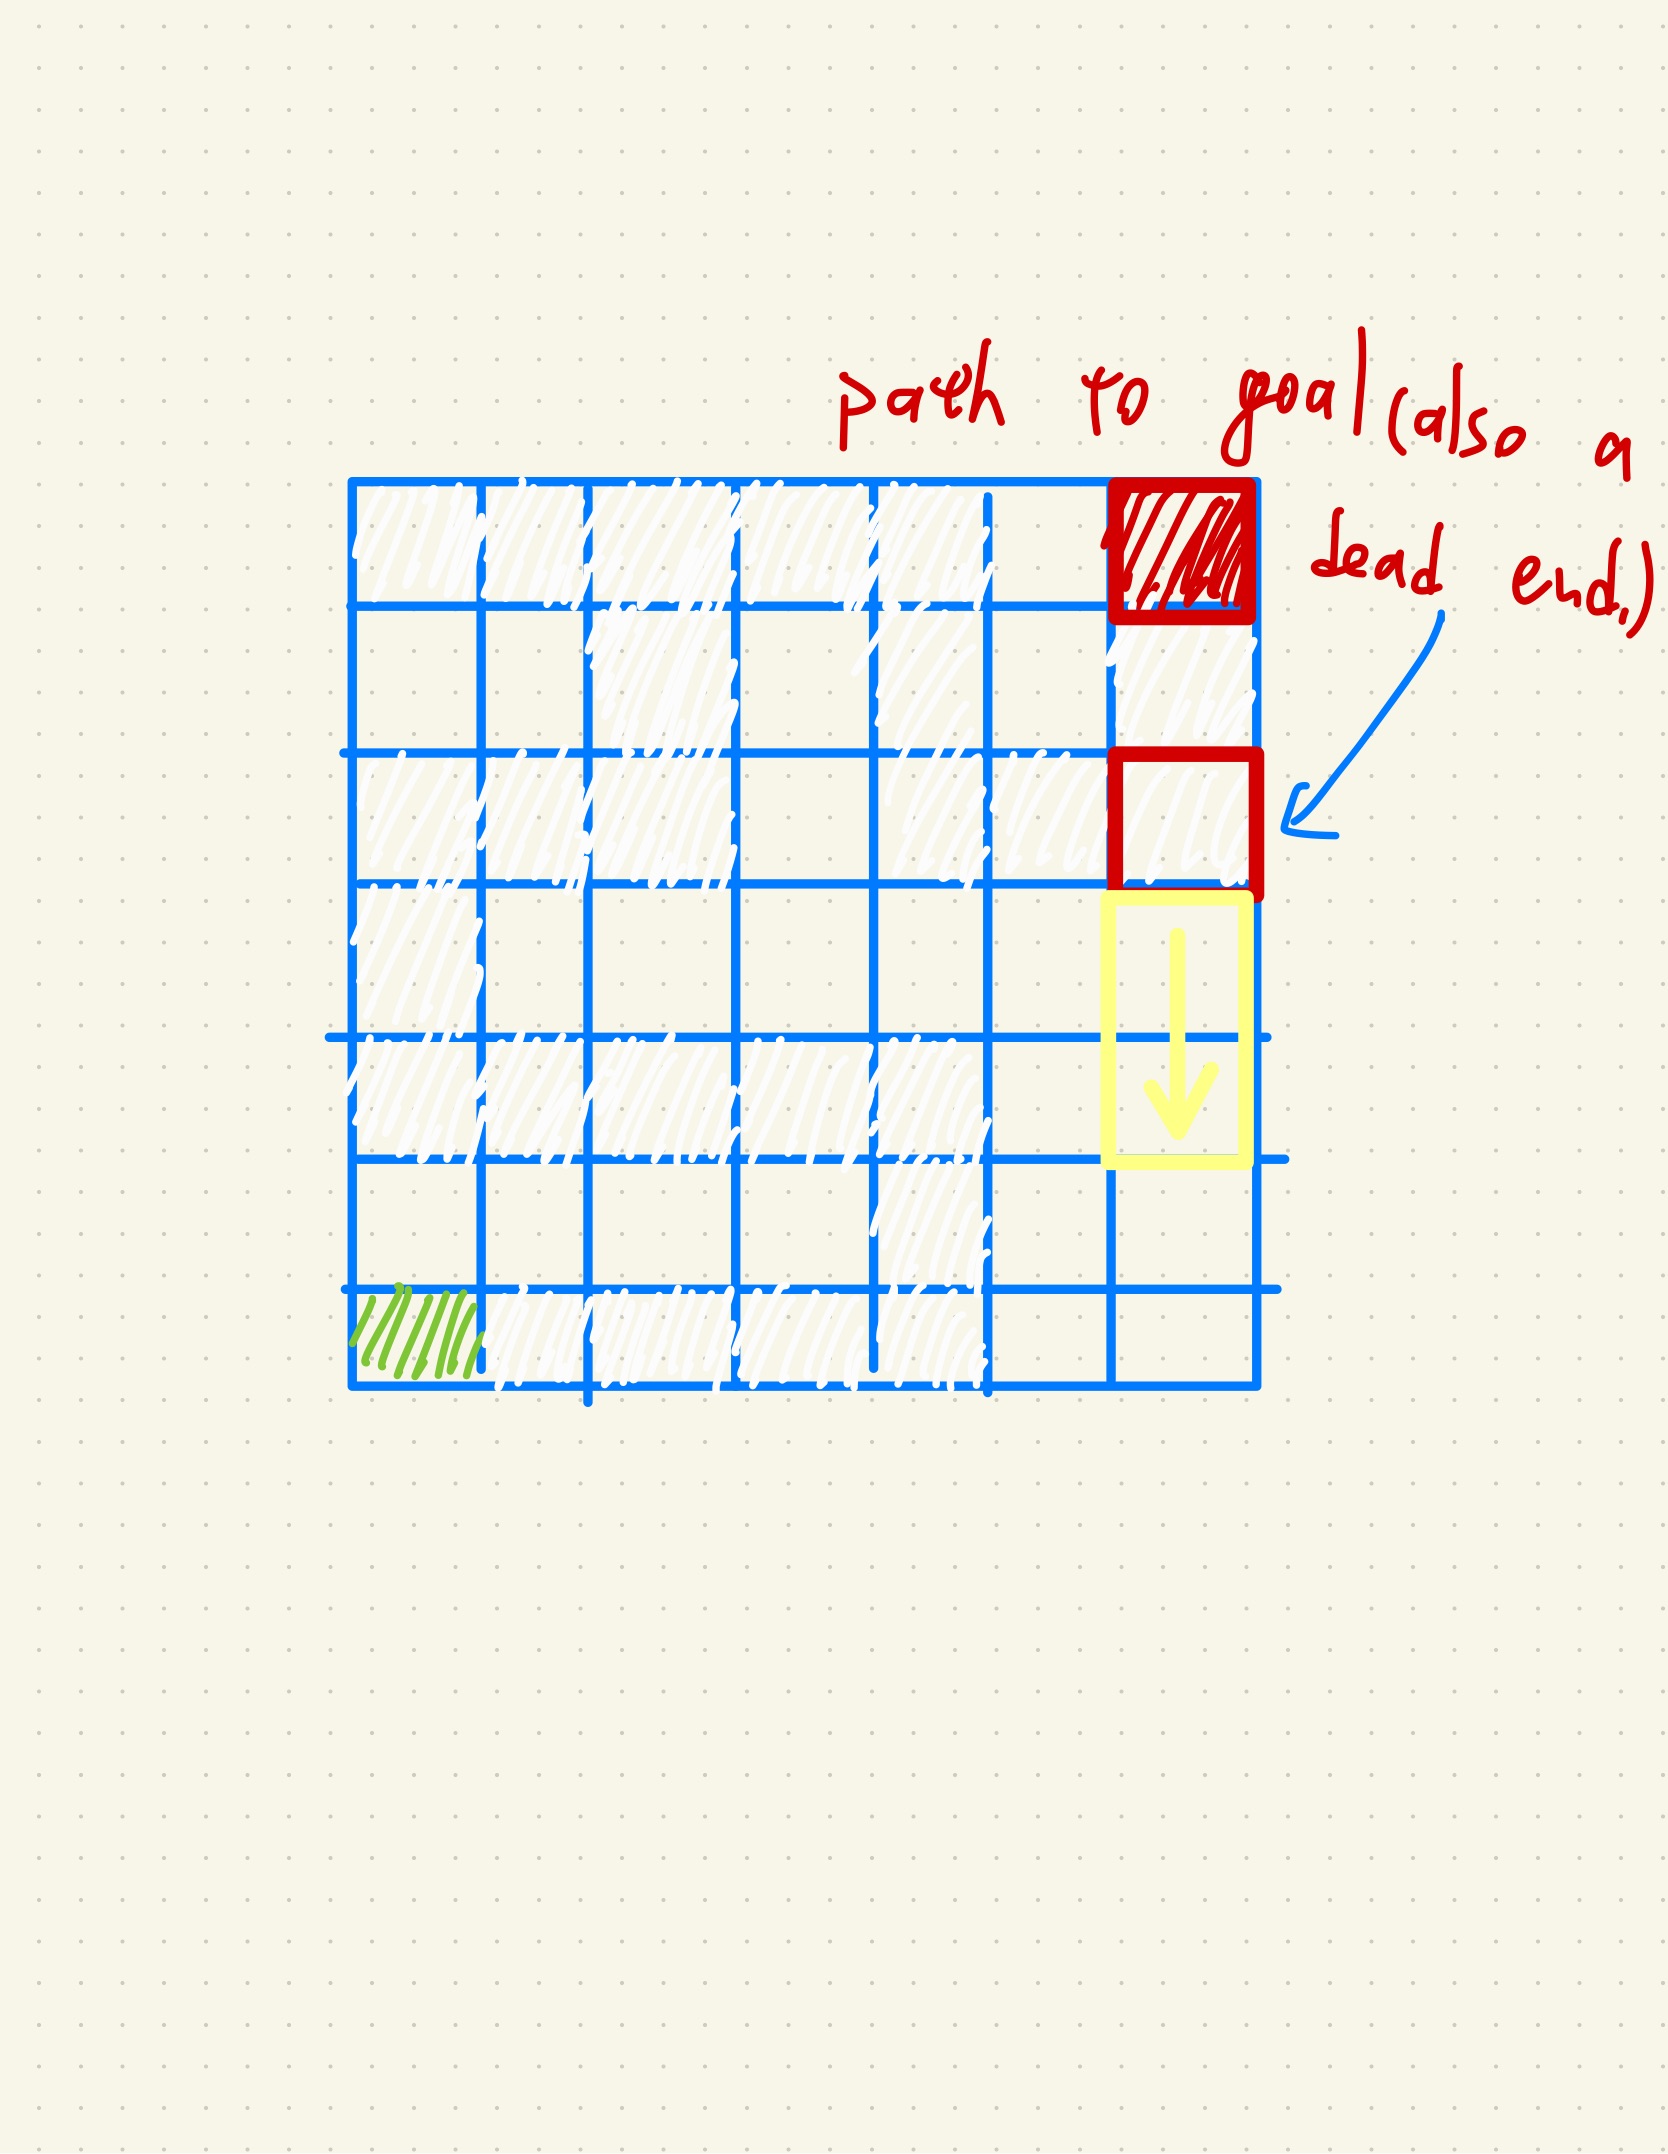 path to goal (also a
dead end,)